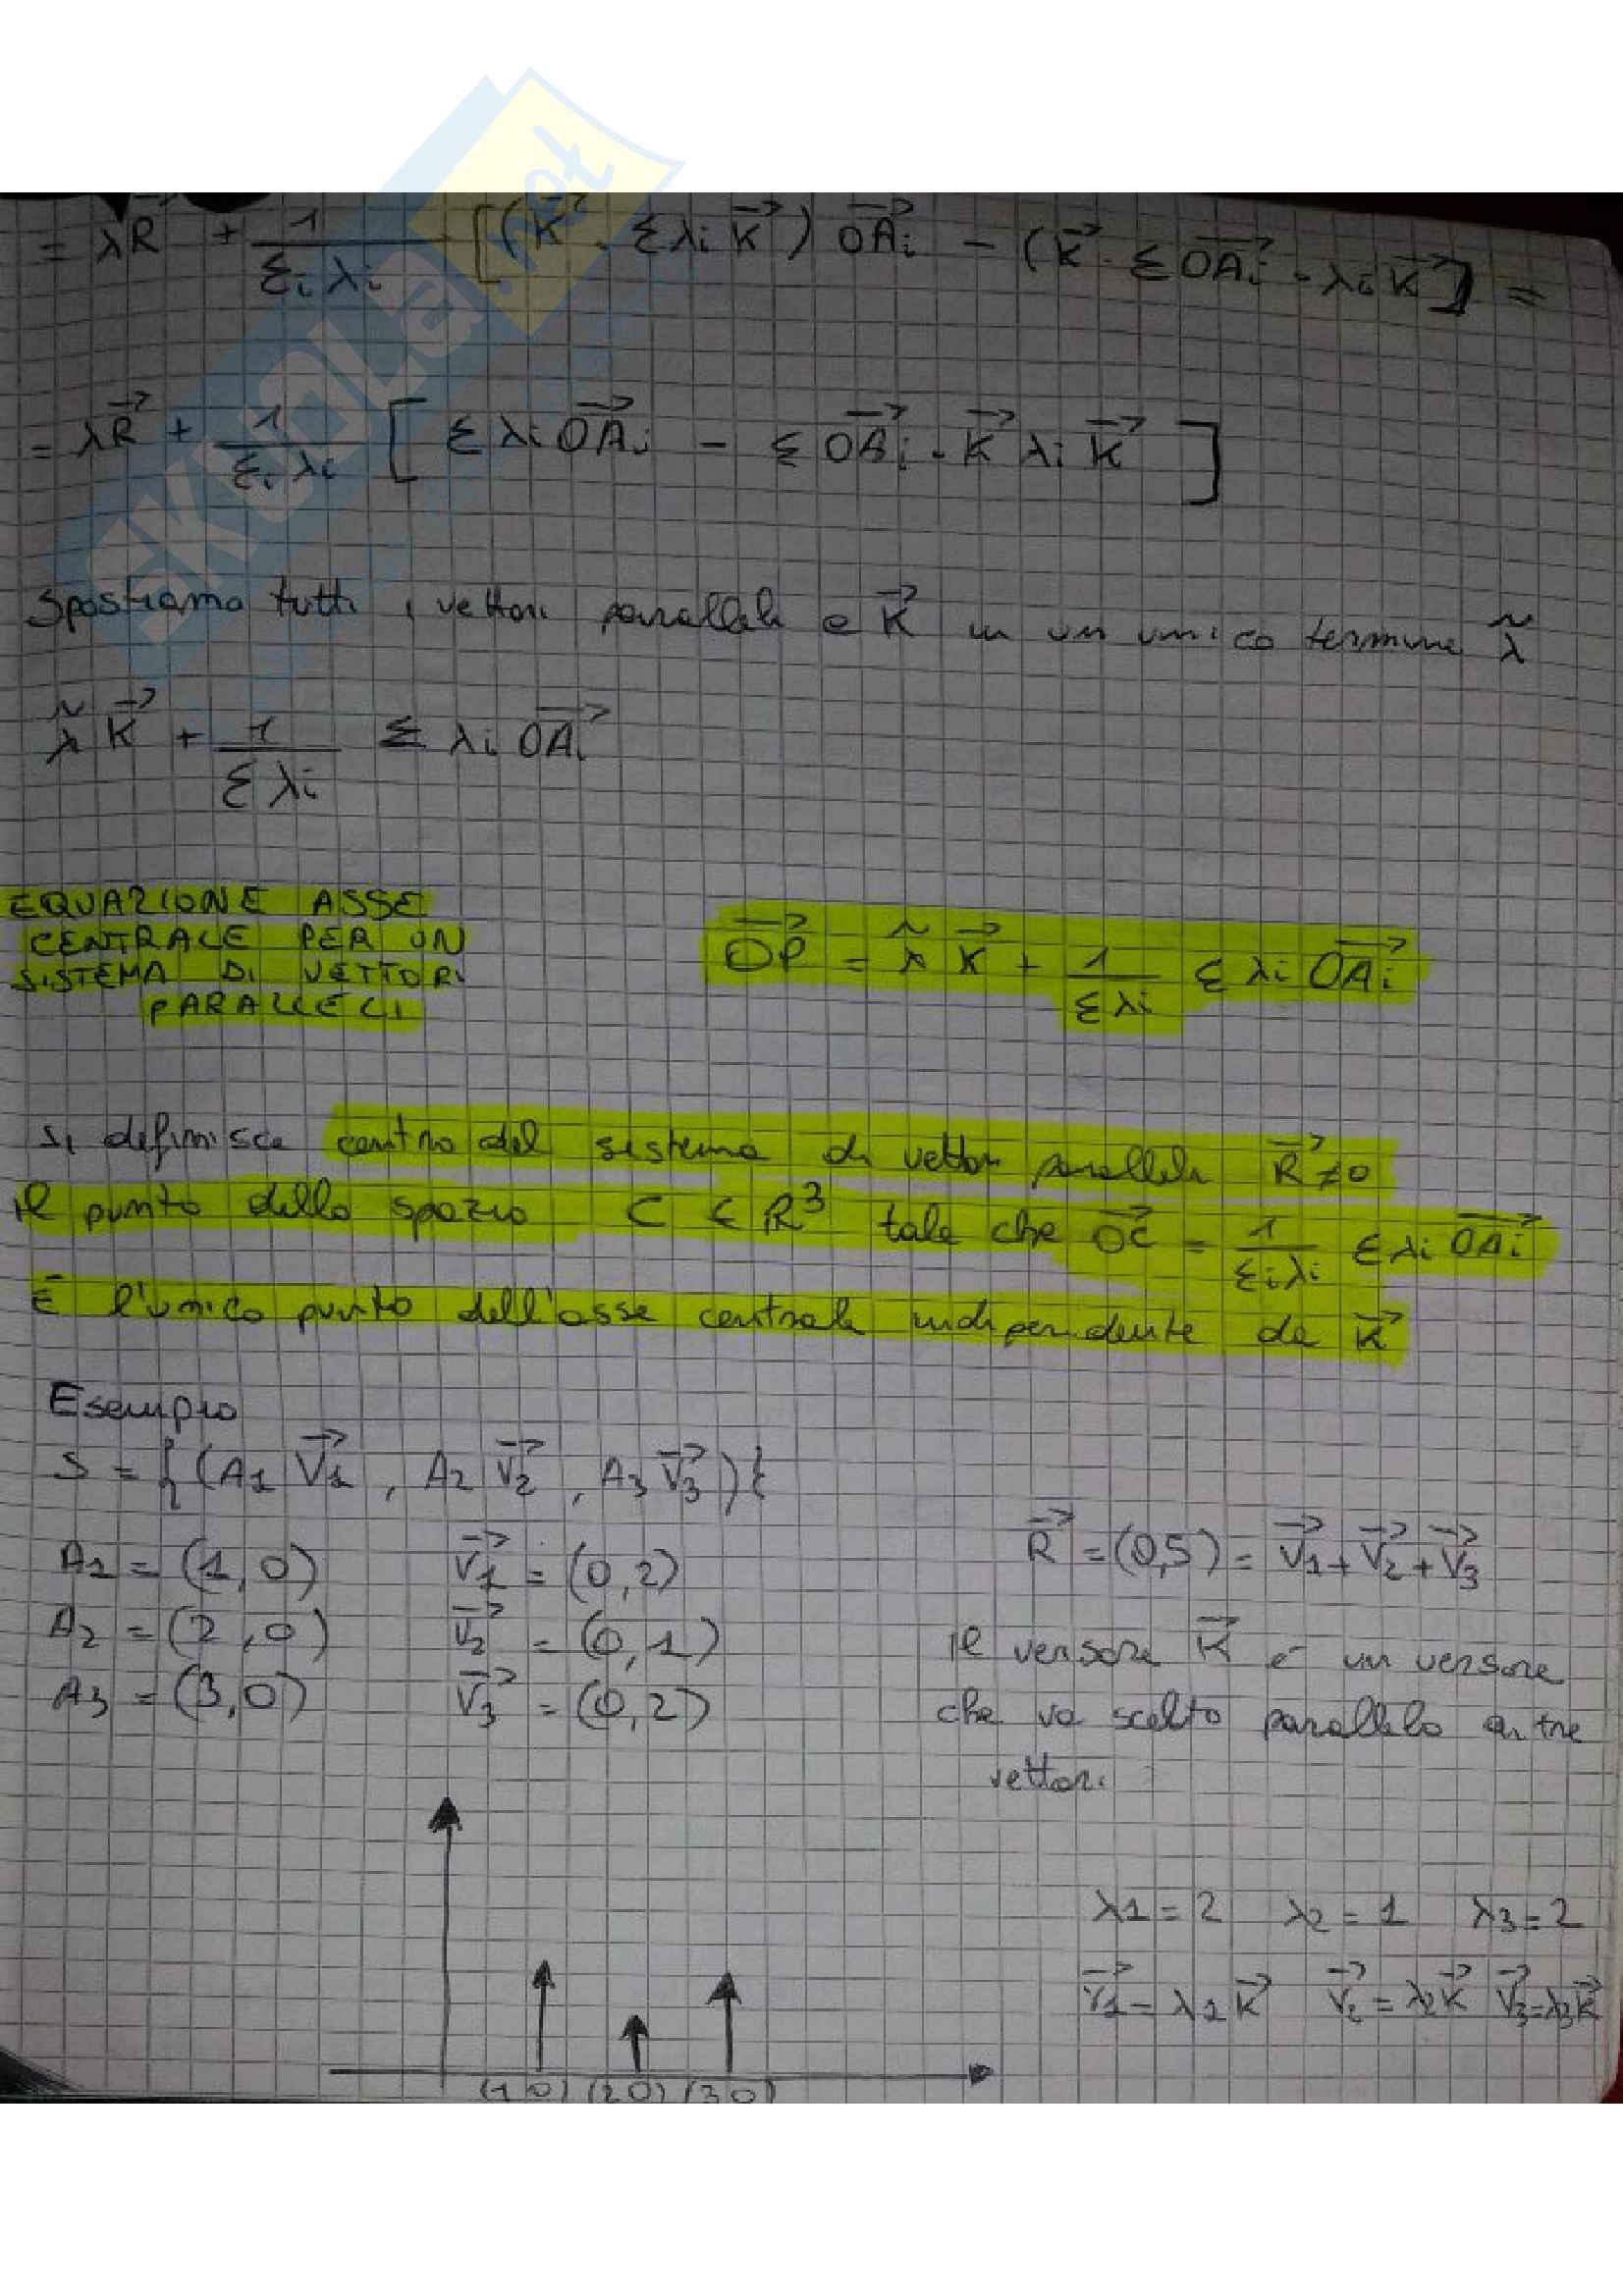 SKUOLA.net
= λR⃗ + 1/Σi λi [(K⃗ · Σλi K⃗) OA⃗i - (K⃗ · Σ OA⃗i · λi K⃗)] =
= λR⃗ + 1/Σi λi [ Σ λi OA⃗i - Σ OA⃗i · K⃗ λi K⃗ ]
Spostiamo tutti i vettori paralleli a K⃗ in un unico termine λ̃
λ̃ K⃗ + 1/Σ λi Σ λi OA⃗i
EQUAZIONE ASSE
CENTRALE PER UN
SISTEMA DI VETTORI
PARALLELI
OP⃗ = λ̃ K⃗ + 1/Σ λi Σ λi OA⃗i
Si definisce centro del sistema di vettori paralleli R⃗ ≠ 0
il punto dello spazio C ∈ R³ tale che OC⃗ = 1/Σi λi Σ λi OA⃗i
È l'unico punto dell'asse centrale indipendente da K⃗
Esempio
S = { (A1 V⃗1 , A2 V⃗2 , A3 V⃗3) }
A1 = (1,0) V⃗1 = (0,2)
A2 = (2,0) V⃗2 = (0,1)
A3 = (3,0) V⃗3 = (0,2)
R⃗ = (0,5) = V⃗1 + V⃗2 + V⃗3
Il versore K⃗ è un versore
che va scelto parallelo ai tre
vettori
λ1 = 2 λ2 = 1 λ3 = 2
V⃗1 = λ1 K⃗ V⃗2 = λ2 K⃗ V⃗3 = λ3 K⃗
(1 0) (2 0) (3 0)